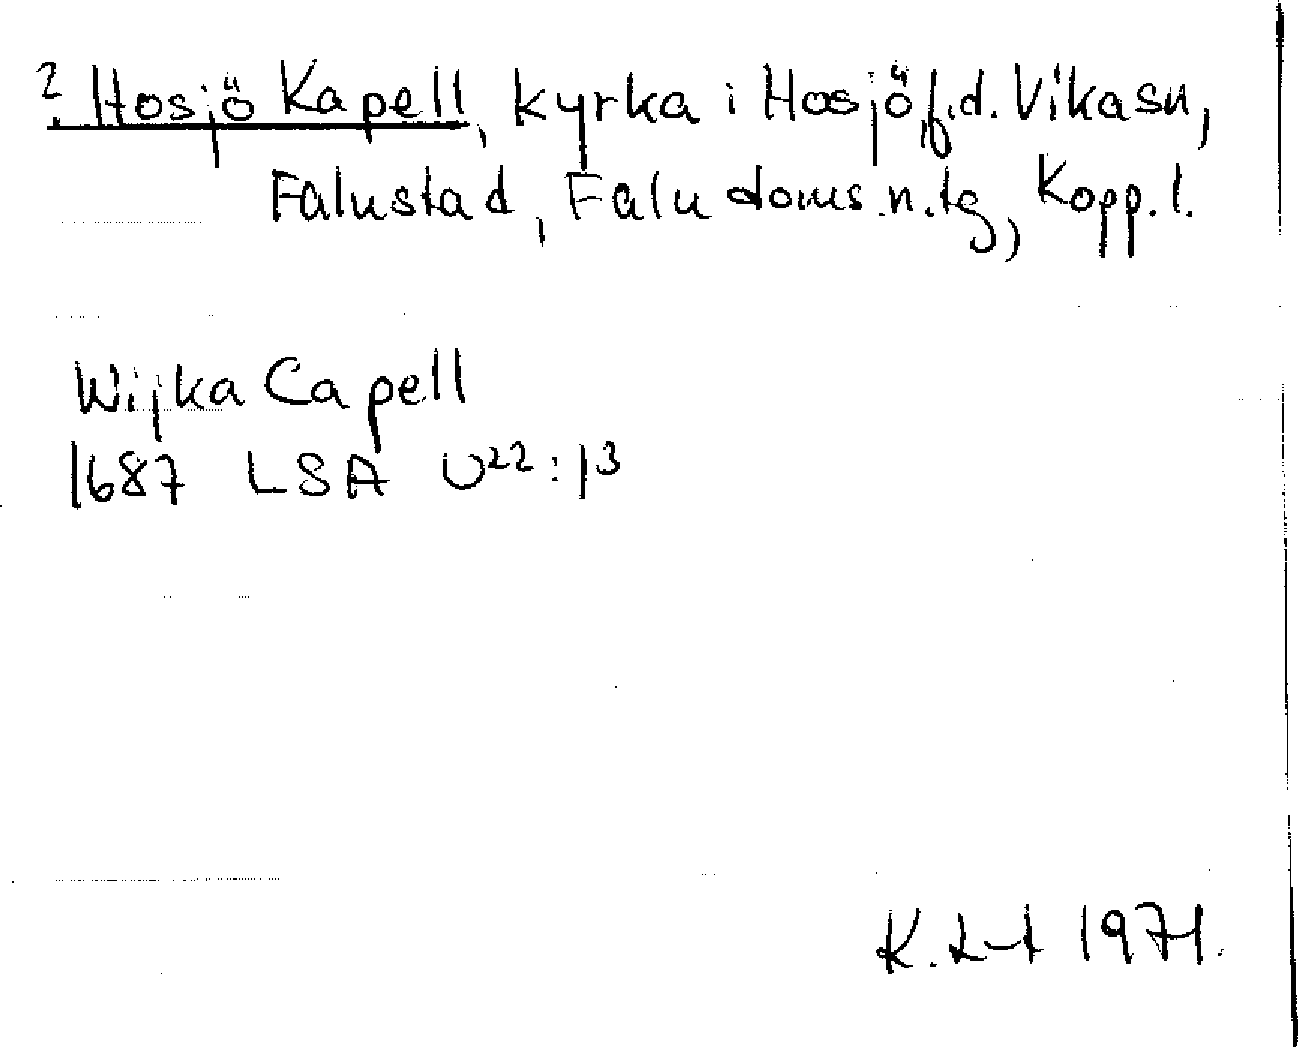 ? Hosjö Kapell, kyrka i Hosjö, f.d. Vika sn,
Falu stad, Falu doms.n.tg, Kopp. l.
Wijka Capell
1687 LSA U22:13
K. L-t 1971.